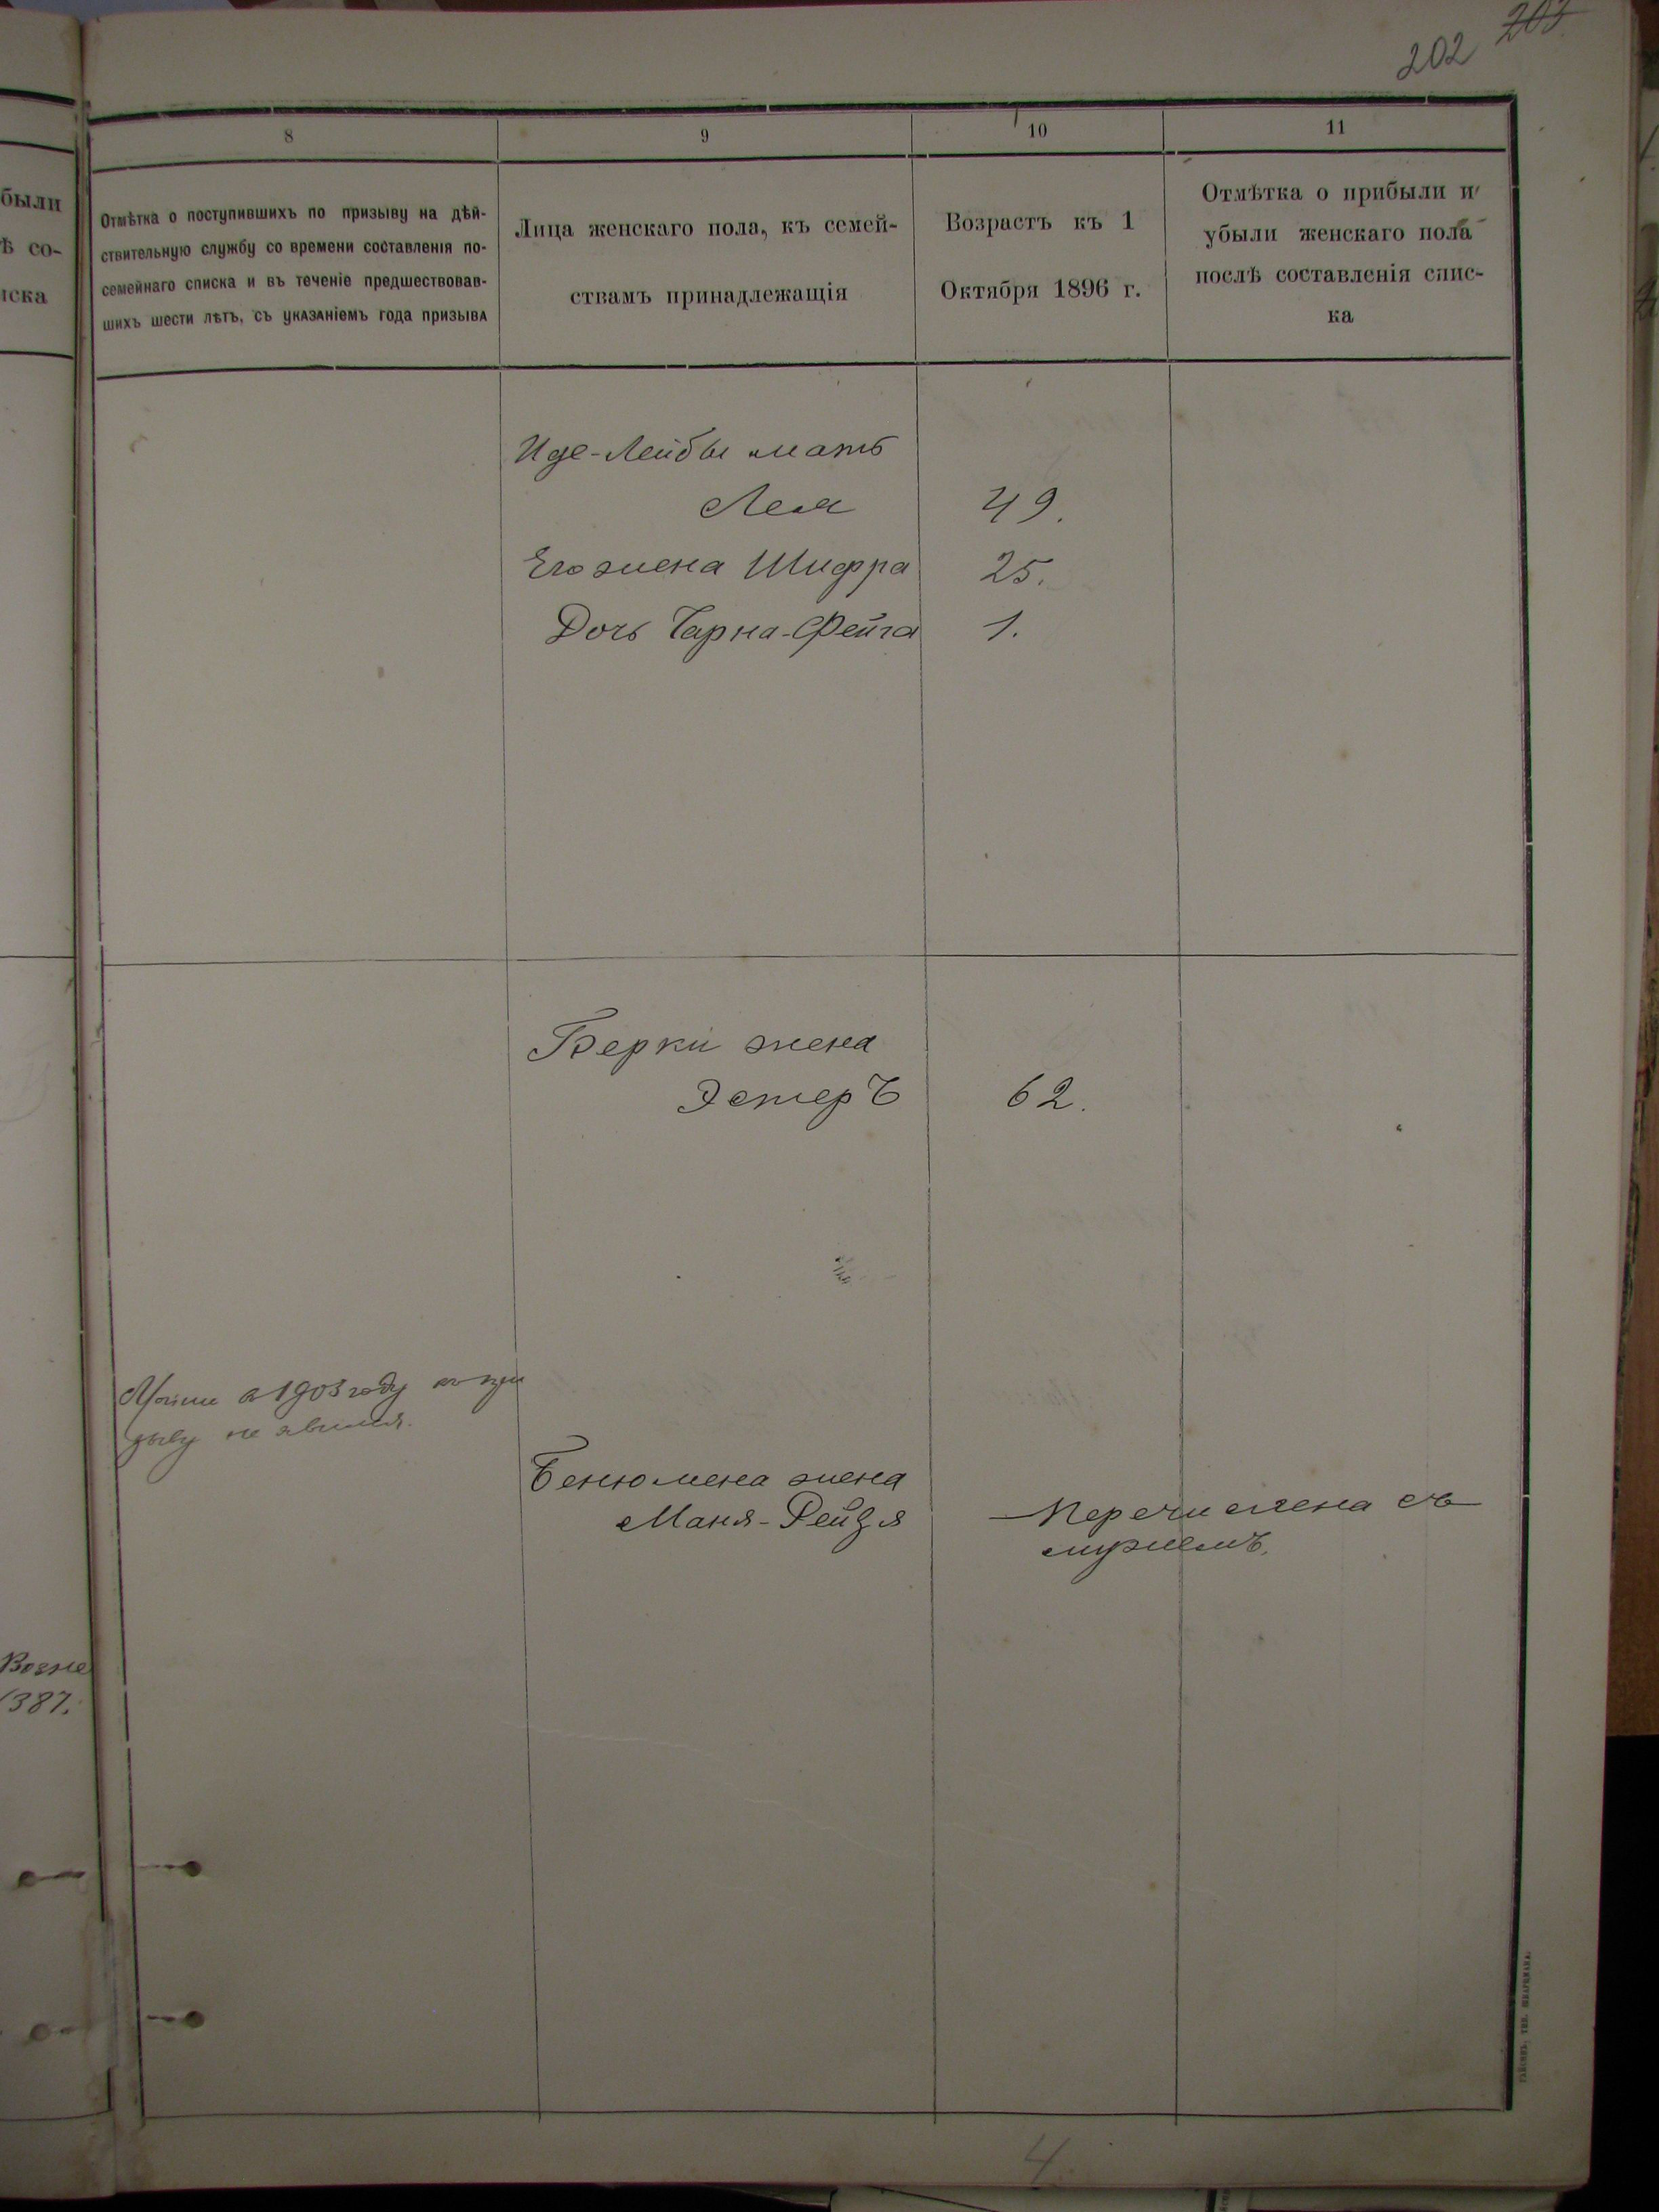 203
202
были
ѣ со-
иска
8
9
10
11
Отмѣтка о поступившихъ по призыву на дѣй-
ствительную службу со времени составленія по-
семейнаго списка и въ теченіе предшествовав-
шихъ шести лѣтъ, съ указаніемъ года призыва
Лица женскаго пола, къ семей-
ствамъ принадлежащія
Возрастъ къ 1
Октября 1896 г.
Отмѣтка о прибыли и
убыли женскаго пола
послѣ составленія спис-
ка
Иде-Лейбы мать
Лея 49.
Его жена Шифра 25.
Дочь Чарна-Фейга 1.
Берки жена
Эстеръ 62.
в 1903 году къ при
зыву не явился.
Бенюмена жена
Маня-Рейзя
Перечислена съ
мужемъ.
Возне
387.
4